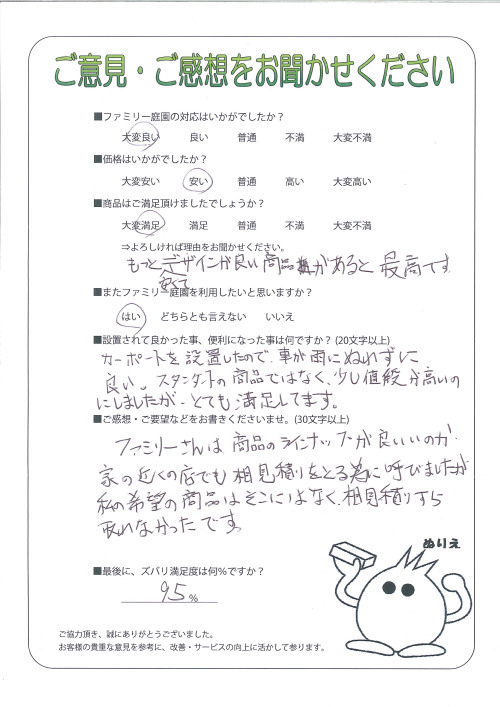 ご意見・ご感想をお聞かせください
■ファミリー庭園の対応はいかがでしたか？
大変良い 良い 普通 不満 大変不満
■価格はいかがでしたか？
大変安い 安い 普通 高い 大変高い
■商品はご満足頂けましたでしょうか？
大変満足 満足 普通 不満 大変不満
⇒よろしければ理由をお聞かせください。
もっとデザインが良い商品があると最高です
安くて
■またファミリー庭園を利用したいと思いますか？
はい どちらとも言えない いいえ
■設置されて良かった事、便利になった事は何ですか？(20文字以上)
カーポートを設置したので、車が雨にぬれずに
良い。スタンダートの商品ではなく、少し値段が高いの
にしましたが、とても満足してます。
■ご感想・ご要望などをお書きくださいませ。(30文字以上)
ファミリーさんは商品のラインナップが良いいのか、
家の近くの店でも相見積りをとる為に呼びましたが
私の希望の商品はそこにはなく、相見積りすら
取れなかったです。
ぬりえ
■最後に、ズバリ満足度は何%ですか？
95%
ご協力頂き、誠にありがとうございました。
お客様の貴重な意見を参考に、改善・サービスの向上に活かして参ります。